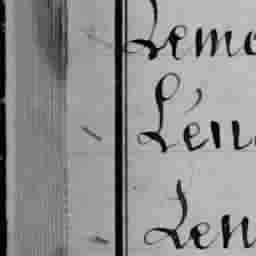 Lemo
L'en
Len